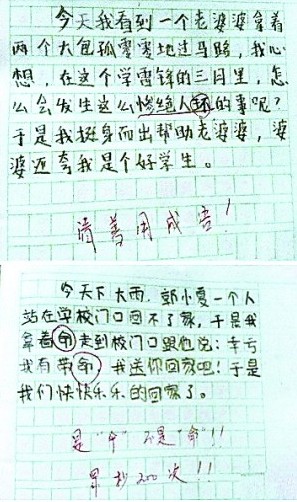 今天我看到一个老婆婆拿着
两个大包孤零零地过马路，我心
想，在这个学雷锋的三月里，怎
么会发生这么惨绝人环的事呢？
于是我挺身而出帮助老婆婆，婆
婆还夸我是个好学生。
请善用成语！
今天下大雨，郭小雯一个人
站在学校门口回不了家，于是我
拿着命走到校门口跟他说：幸亏
我有带命，我送你回家吧！于是
我们快快乐乐的回家了。
是“伞”不是“命”！！
罚抄200次！！